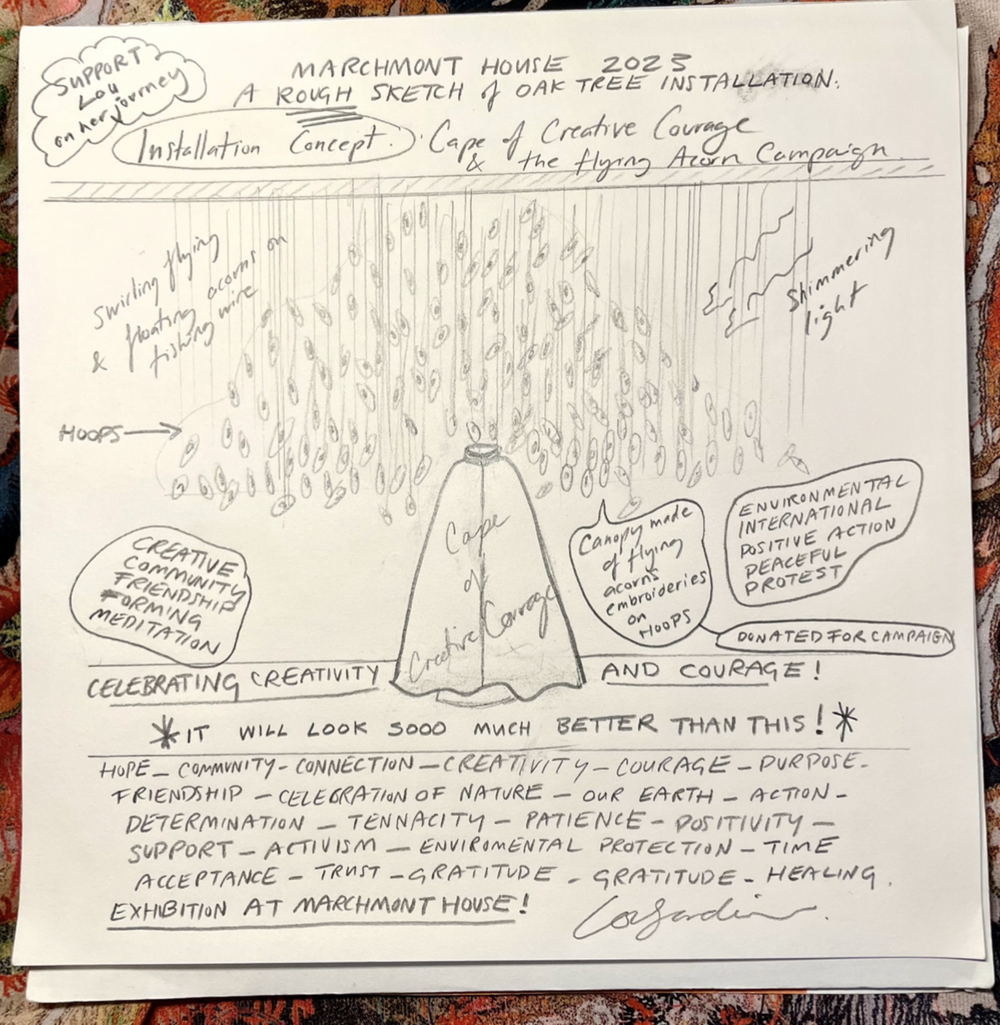 SUPPORT
LOU
on her journey
MARCHMONT HOUSE 2023
A ROUGH SKETCH of OAK TREE INSTALLATION.
Installation Concept: Cape of Creative Courage
& the flying Acorn Campaign
Swirling flying
& floating acorns on
fishing wire
Shimmering
light
HOOPS
Cape
of
Creative Courage
Canopy made
of flying
acorns
embroideries
on
HOOPS
ENVIRONMENTAL
INTERNATIONAL
POSITIVE ACTION
PEACEFUL
PROTEST
DONATED FOR CAMPAIGN
CREATIVE
COMMUNITY
FRIENDSHIP
FORMING
MEDITATION
CELEBRATING CREATIVITY AND COURAGE!
*IT WILL LOOK SOOO MUCH BETTER THAN THIS!*
HOPE - COMMUNITY - CONNECTION - CREATIVITY - COURAGE - PURPOSE -
FRIENDSHIP - CELEBRATION OF NATURE - OUR EARTH - ACTION -
DETERMINATION - TENNACITY - PATIENCE - POSITIVITY -
SUPPORT - ACTIVISM - ENVIROMENTAL PROTECTION - TIME
ACCEPTANCE - TRUST - GRATITUDE - GRATITUDE - HEALING.
EXHIBITION AT MARCHMONT HOUSE!